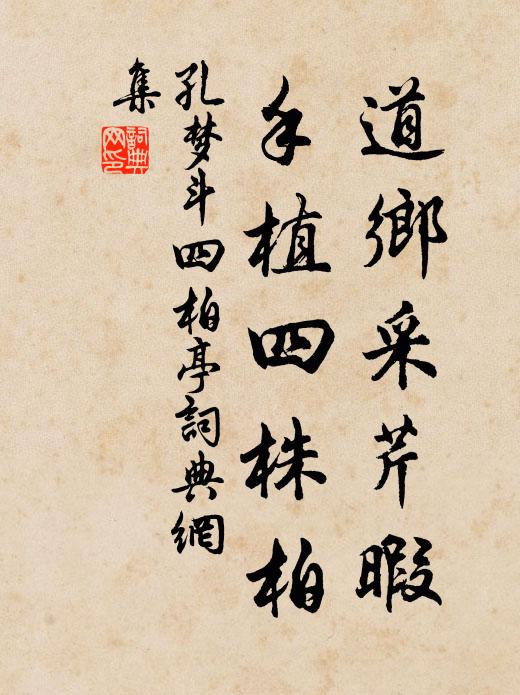 道鄉采芹暇
手植四株柏
孔梦斗四柏亭詞典網
集
詞典網印